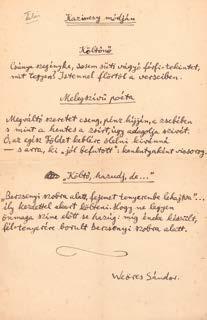 Kazinczy módján
Költőnő
Csúnya szegényke, sosem süti vágyó férfi-tekintet,
mát Istennel flörtöl a verseiben.
Melegszívű poéta
Megváltó szeretet cseng, pénz híjján, a zsebében
s mint a hentes a zsírt, úgy adagolja szivét.
Ó, az egész Földet keblére ölelni kivánná
— s árra, ki „jól befutott”:
„Költő, hazudj, de...”
„Berzsenyi szobra alatt, fejemet tenyerembe lehajtva”...
íly kezdettel akart költeni. Hogy ne legyen
önmaga színe előtt se hazug: míg éneke készült,
fél-tenyérére borult Berzsenyi szobra alatt.
Weöres Sándor.